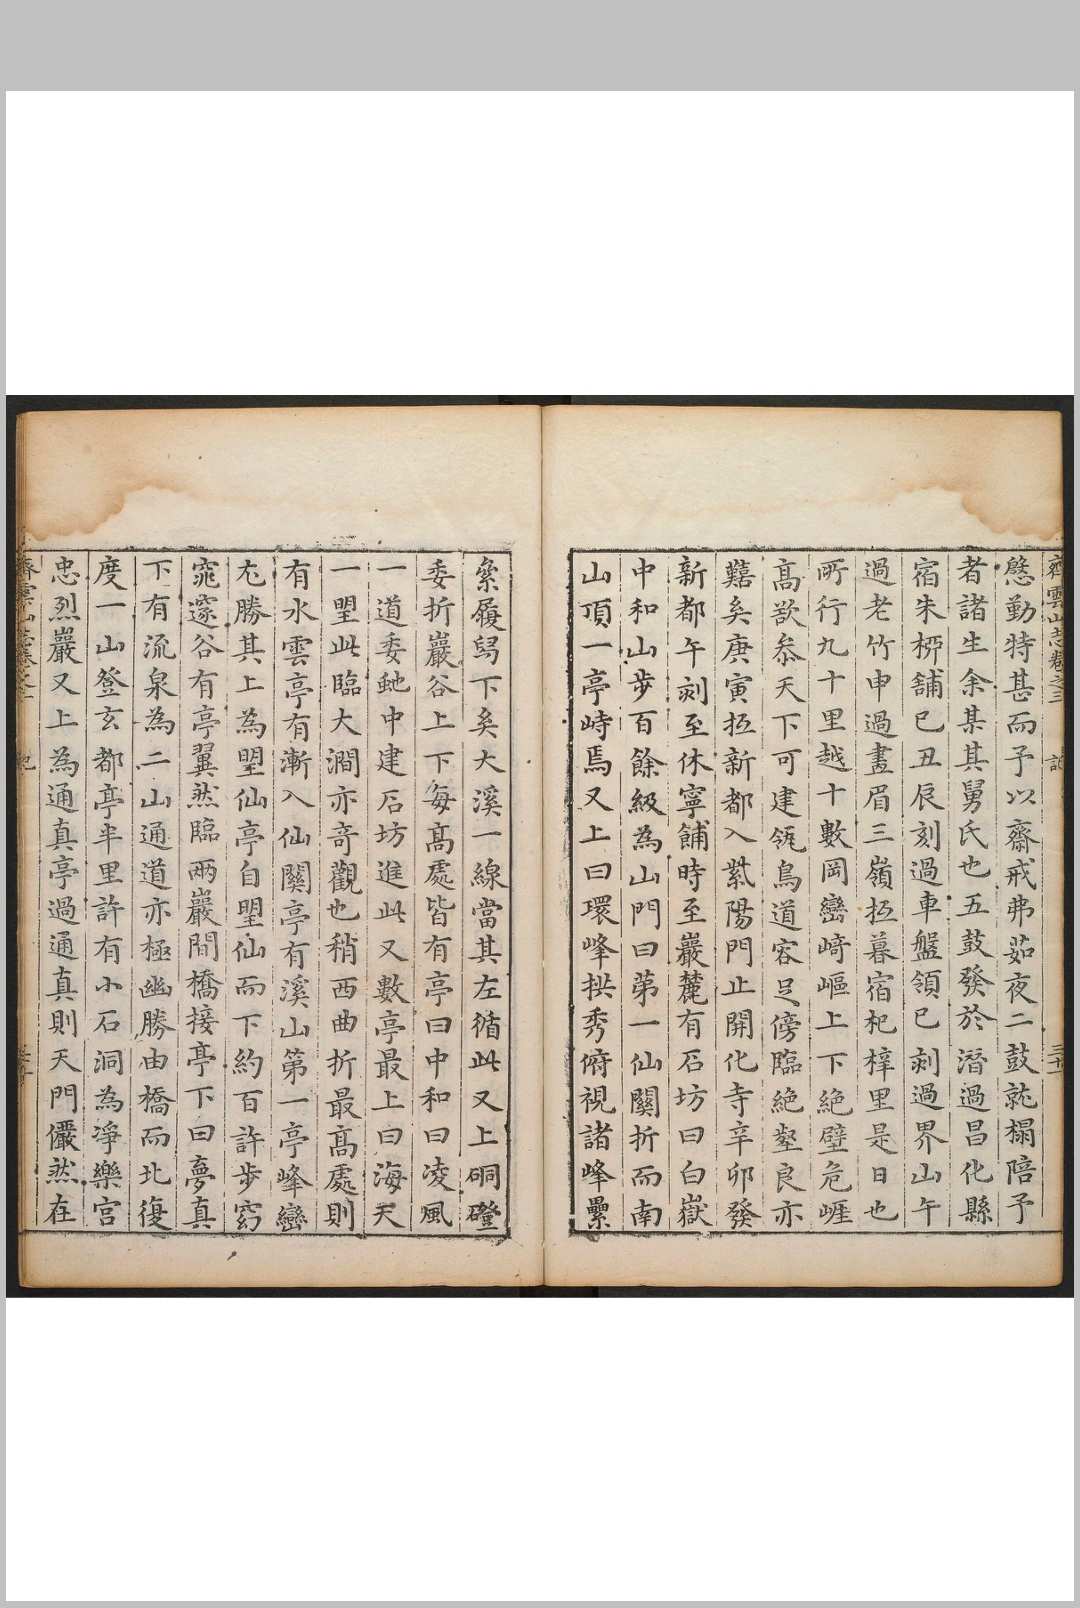 齊雲山志卷之三 記 三十一
慇勤特甚而予以齋戒弗茹夜二鼓就榻陪予
者諸生余某其舅氏也五鼓發於潛過昌化縣
宿朱桞舖已丑辰刻過車盤領巳刻過界山午
過老竹申過晝眉三嶺抵暮宿杞梓里是日也
所行九十里越十數岡巒﨑嶇上下絶壁危崕
髙欲叅天下可建瓴鳥道容足傍臨絶壑良亦
囏矣庚寅抵新都入紫陽門止開化寺辛卯發
新都午刻至休寧餔時至巖麓有石坊曰白嶽
中和山步百餘級為山門曰苐一仙關折而南
山頂一亭峙焉又上曰環峰拱秀俯視諸峰纍
纍履舄下矣大溪一線當其左循此又上硐磴
委折巖谷上下每髙處皆有亭曰中和曰凌風
一道委虵中建石坊進此又數亭最上曰海天
一朢此臨大澗亦竒觀也稍西曲折最髙處則
有水雲亭有漸入仙關亭有溪山第一亭峰巒
尢勝其上為朢仙亭自朢仙而下約百許步窈
窕邃谷有亭翼然臨兩巖間橋接亭下曰夢真
下有流泉為二山通道亦極幽勝由橋而北復
度一山登玄都亭半里許有小石洞為淨樂宮
忠烈巖又上為通真亭過通真則天門儼然在